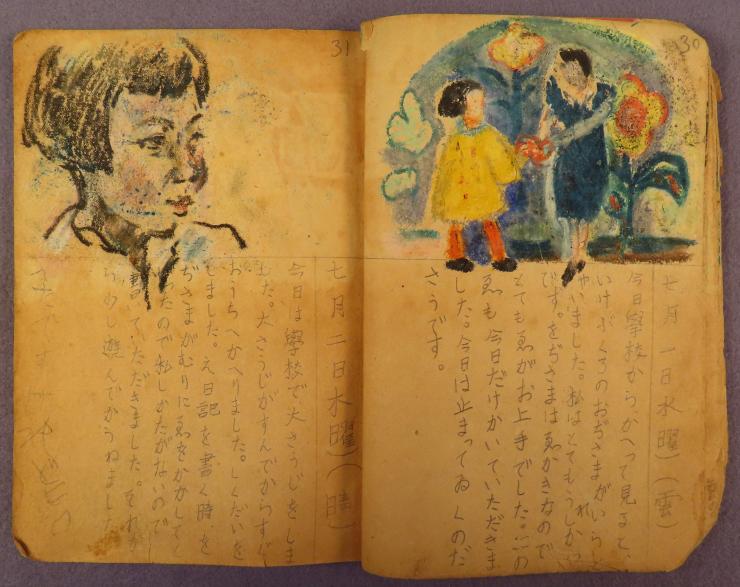 30
七月一日水曜(雲)
今日學校からかへって見ると、
いけぶくろのおぢさまがいらし
やいました。私はとてもうれしかつ
です。をぢさまはゑかきなので
とてもゑがお上手でした。この
ゑも今日だけかいていただきま
した。今日は止まってゐくのだ
さうです。
31
七月二日水曜(晴)
今日は學校で大さうじをしま
した。大さうじがすんでからすぐ
おうちへかへりました。しくだいを
しました。え日記を書く時を
ぢさまがむりにゑをかかしてく
つたので私しかたがないので
書いていただきました。それか
ら少し遊んでからねました